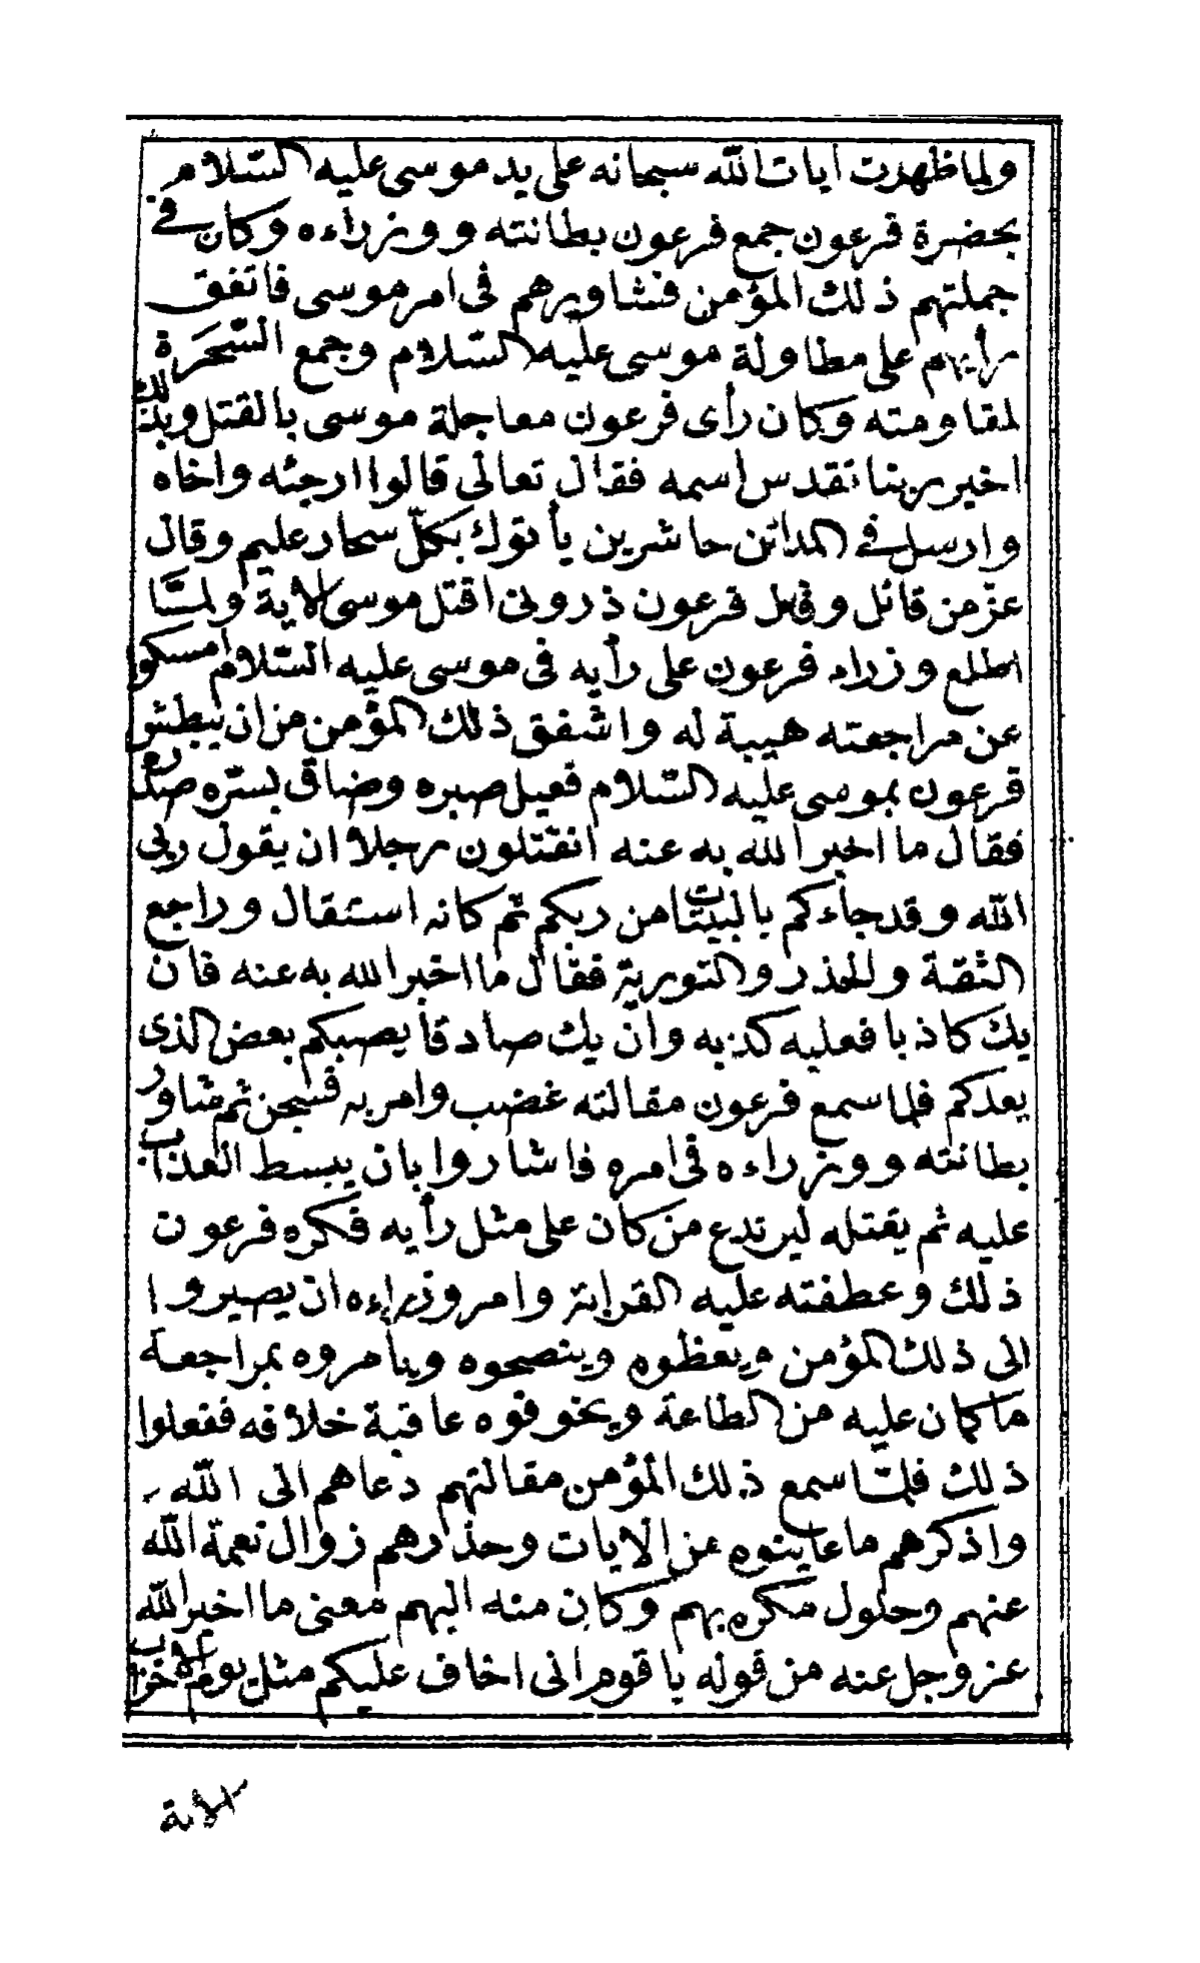 ولما ظهرت ايات الله سبحانه على يد موسى عليه السّلام
بحضرة فرعون جمع فرعون بطانته ووزراءه وكان في
جملتهم ذلك المؤمن فشاورهم فى امر موسى فاتفق
رأيهم على مطاولة موسى عليه السّلام وجمع السَّحَرة
لمقاومته وكان رأى فرعون معاجلة موسى بالقتل وبذلك
اخبر ربنا تقدس اسمه فقال تعالى قالوا ارجئه واخاه
وارسل في المدائن حاشرين يأتوك بكلّ سحار عليم وقال
عزّ من قائل وقال فرعون ذرونى اقتل موسى الاية ولمّا
اطلع وزراء فرعون على رأيه فى موسى عليه السّلام امسكوا
عن مراجعته هيبة له واشفق ذلك المؤمن من ان يبطش
فرعون بموسى عليه السّلام فعيل صبره وضاق بسّره صدره
فقال ما اخبر الله به عنه اتقتلون رجلا ان يقول ربى
الله وقد جاءكم بالبينات من ربكم ثم كانه استقال وراجع
التقة والحذر والتورية فقال ما اخبر الله به عنه فان
يك كاذبا فعليه كذبه وان يك صادقا يصبكم بعض الذى
يعدكم فلما سمع فرعون مقالته غضب وامر به فسجن ثم شاور
بطانته ووزراءه فى امره فاشاروا بان يبسط العذاب
عليه ثم يقتله ليرتدع من كان على مثل رأيه فكره فرعون
ذلك وعطفته عليه القرابة وامر وزراءه ان يصيروا
الى ذلك المؤمن ويعظوه وينصحوه ويأمروه بمراجعة
ما كان عليه من الطاعة ويخوفوه عاقبة خلافه ففعلوا
ذلك فلمّا سمع ذلك المؤمن مقالتهم دعاهم الى الله
واذكرهم ما عاينوه من الايات وحذرهم زوال نعمة الله
عنهم وحلول مكره بهم وكان منه اليهم معنى ما اخبر الله
عز وجل عنه من قوله يا قوم انى اخاف عليكم مثل يوم الاحزاب
الاية